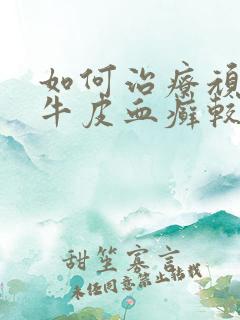 如何治療頑
牛皮血癬較
甜笙寡言
未经同意禁止转载